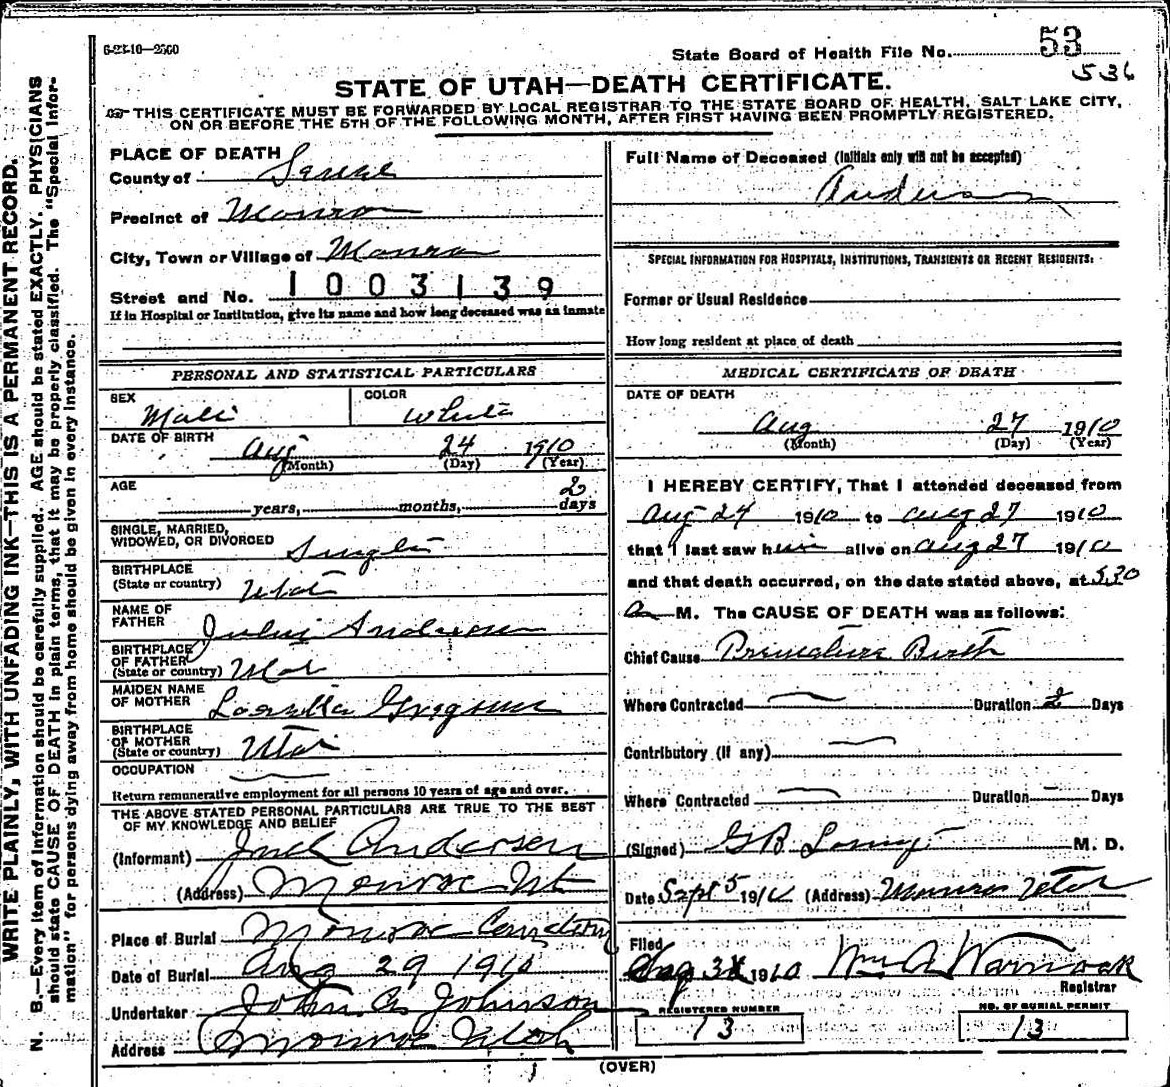 6-23-10—2500
State Board of Health File No. 53
536
STATE OF UTAH—DEATH CERTIFICATE.
THIS CERTIFICATE MUST BE FORWARDED BY LOCAL REGISTRAR TO THE STATE BOARD OF HEALTH, SALT LAKE CITY,
ON OR BEFORE THE 5TH OF THE FOLLOWING MONTH, AFTER FIRST HAVING BEEN PROMPTLY REGISTERED.
WRITE PLAINLY, WITH UNFADING INK—THIS IS A PERMANENT RECORD.
N. B.—Every item of information should be carefully supplied. AGE should be stated EXACTLY. PHYSICIANS
should state CAUSE OF DEATH in plain terms, that it may be properly classified. The "Special Infor-
mation" for persons dying away from home should be given in every instance.
PLACE OF DEATH
County of Sevier
Precinct of Monroe
City, Town or Village of Monroe
Street and No. 1003139
If in Hospital or Institution, give its name and how long deceased was an inmate
PERSONAL AND STATISTICAL PARTICULARS
SEX Male
COLOR White
DATE OF BIRTH Aug 24 1910
(Month) (Day) (Year)
AGE
years, months, 2 days
SINGLE, MARRIED,
WIDOWED, OR DIVORCED Single
BIRTHPLACE
(State or country) Utah
NAME OF
FATHER Andersen
BIRTHPLACE
OF FATHER
(State or country) Utah
MAIDEN NAME
OF MOTHER
BIRTHPLACE
OF MOTHER
(State or country) Utah
OCCUPATION
Return remunerative employment for all persons 10 years of age and over.
THE ABOVE STATED PERSONAL PARTICULARS ARE TRUE TO THE BEST
OF MY KNOWLEDGE AND BELIEF
(Informant) Andersen
(Address) Monroe Ut
Place of Burial Monroe Cemetery
Date of Burial Aug 29 1910
Undertaker John A Johnson
Address Monroe Utah
Full Name of Deceased (Initials only will not be accepted)
Anderson
SPECIAL INFORMATION FOR HOSPITALS, INSTITUTIONS, TRANSIENTS OR RECENT RESIDENTS:
Former or Usual Residence
How long resident at place of death
MEDICAL CERTIFICATE OF DEATH
DATE OF DEATH
Aug 27 1910
(Month) (Day) (Year)
I HEREBY CERTIFY, That I attended deceased from
Aug 24 1910 to Aug 27 1910
that I last saw him alive on Aug 27 1910
and that death occurred, on the date stated above, at 530
a M. The CAUSE OF DEATH was as follows:
Chief Cause Premature Birth
Where Contracted Duration 2 Days
Contributory (if any)
Where Contracted Duration Days
(Signed) G B M. D.
Date Sept 5 1910 (Address) Monroe Utah
Filed
Aug 31 1910 Wm A Warnock
Registrar
REGISTERED NUMBER
13
NO. OF BURIAL PERMIT
13
(OVER)